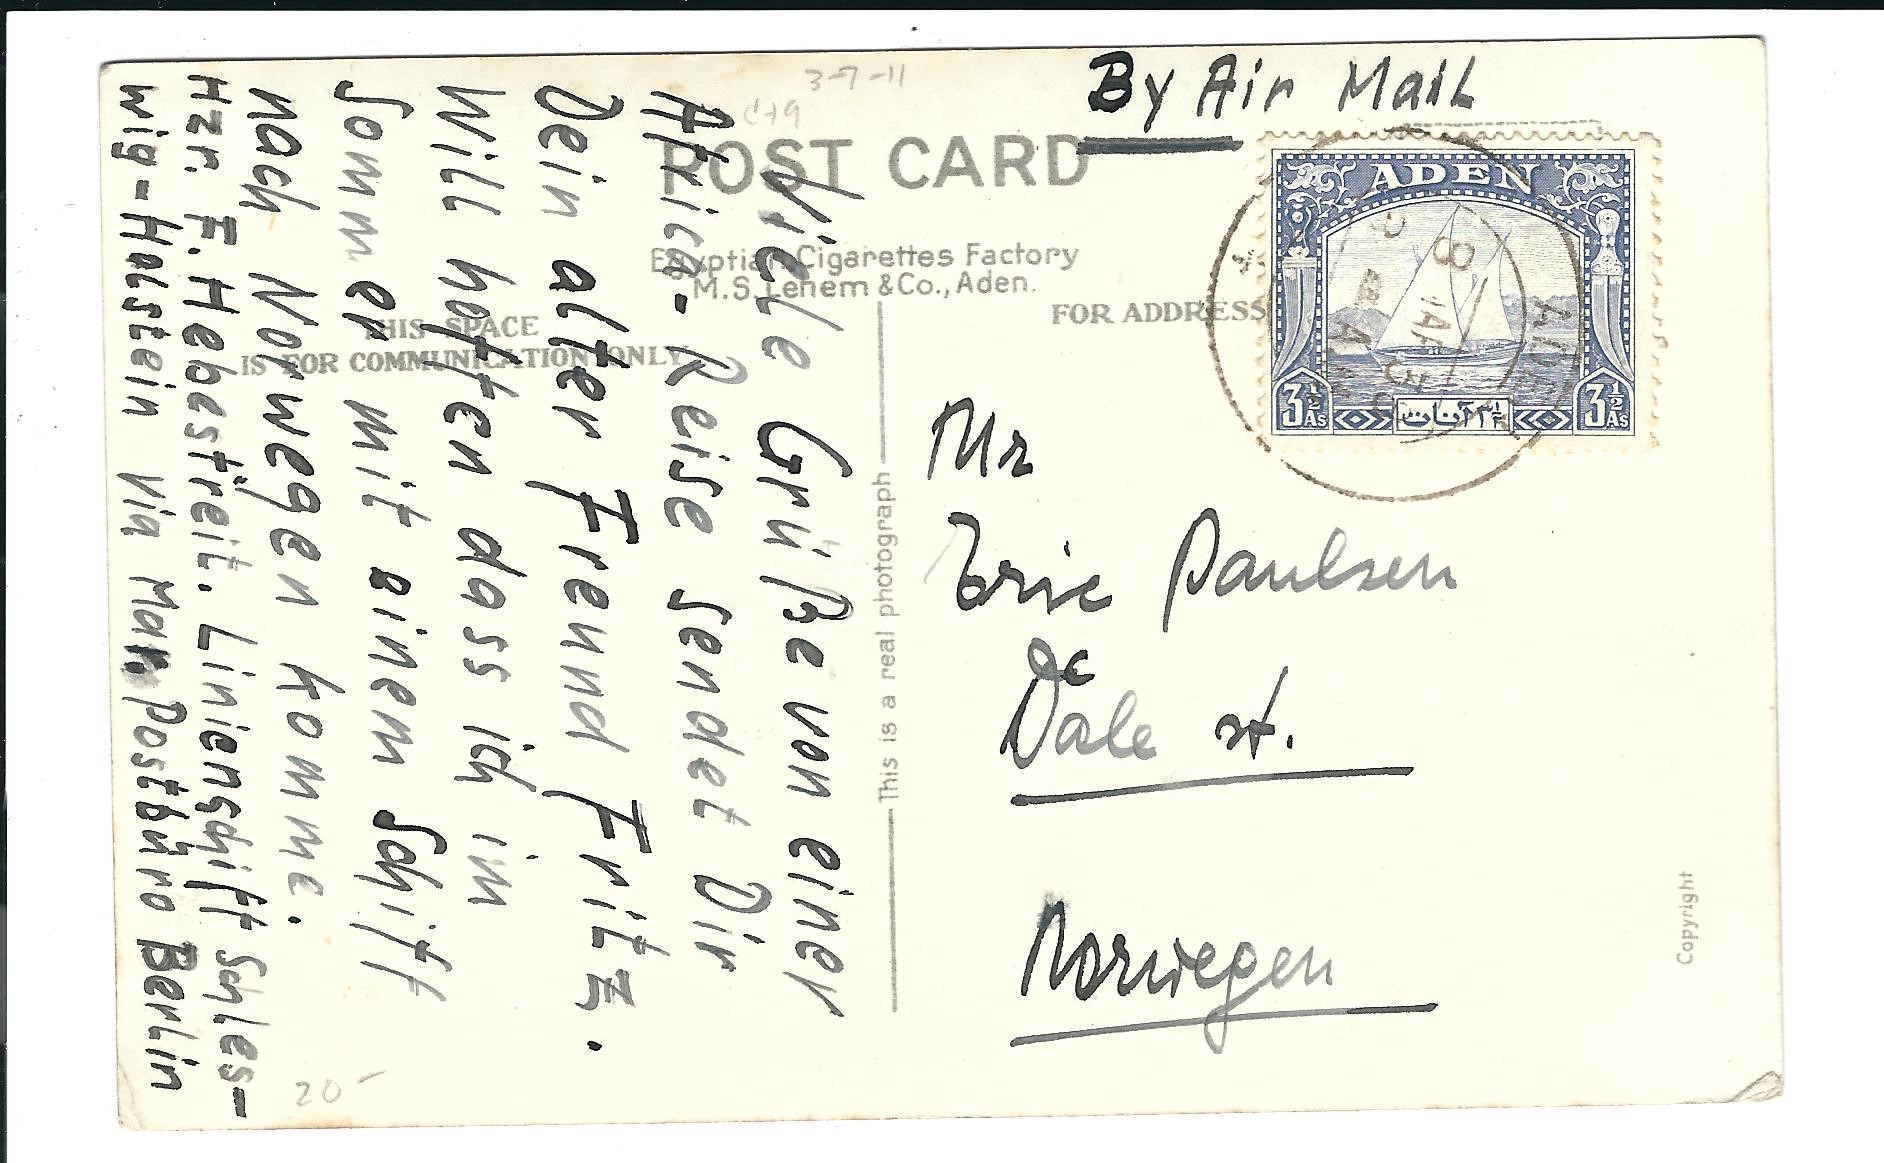 3-7-11
c79
By Air Mail
POST CARD
Egyptian Cigarettes Factory
M.S. Lehem & Co., Aden.
THIS SPACE
IS FOR COMMUNICATION ONLY
FOR ADDRESS
ADEN
3½ As
3½ As
This is a real photograph
Copyright
Mr
Eric Paulsen
Dale st.
Norwegen
Viele Grüße von einer
Africa-Reise sendet Dir
Dein alter Freund Fritz.
Will hoffen dass ich im
Sommer mit einem Schiff
nach Norwegen komme.
Hzr. F. Hebestreit. Linienschiff Schles-
wig-Holstein via Mar. Postbüro Berlin
20-